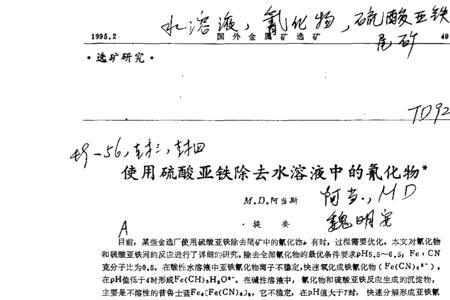 水溶液, 氰化物, 硫酸亚铁
尾矿
1995.2 国外金属矿选矿 49
·选矿研究·
TD92
49-56, 封三, 封四
使用硫酸亚铁除去水溶液中的氰化物*
M.D.阿当斯 阿当, MD
·提要 魏明安
A
目前,某些金选厂使用硫酸亚铁除去尾矿中的氰化物。有时,过程需要优化。本文对氰化物
和硫酸亚铁间的反应进行了详细的研究。除去全部氰化物的最优条件要求pH5.5~6.5; Fe:CN
克分子比为0.5。在酸性水溶液中亚铁氰化物离子不稳定,快速氧化成铁氰化物(Fe(CN)₆³⁻),
在pH值低于4时形成Fe(CH)₅H₂O³⁻。在碱性溶液中,氰化物和硫酸亚铁反应生成的沉淀物,
主要是不溶性的普鲁士蓝Fe₄(Fe(CN)₆)₃,它不稳定,在pH值大于7时,快速分解形成亚铁氰